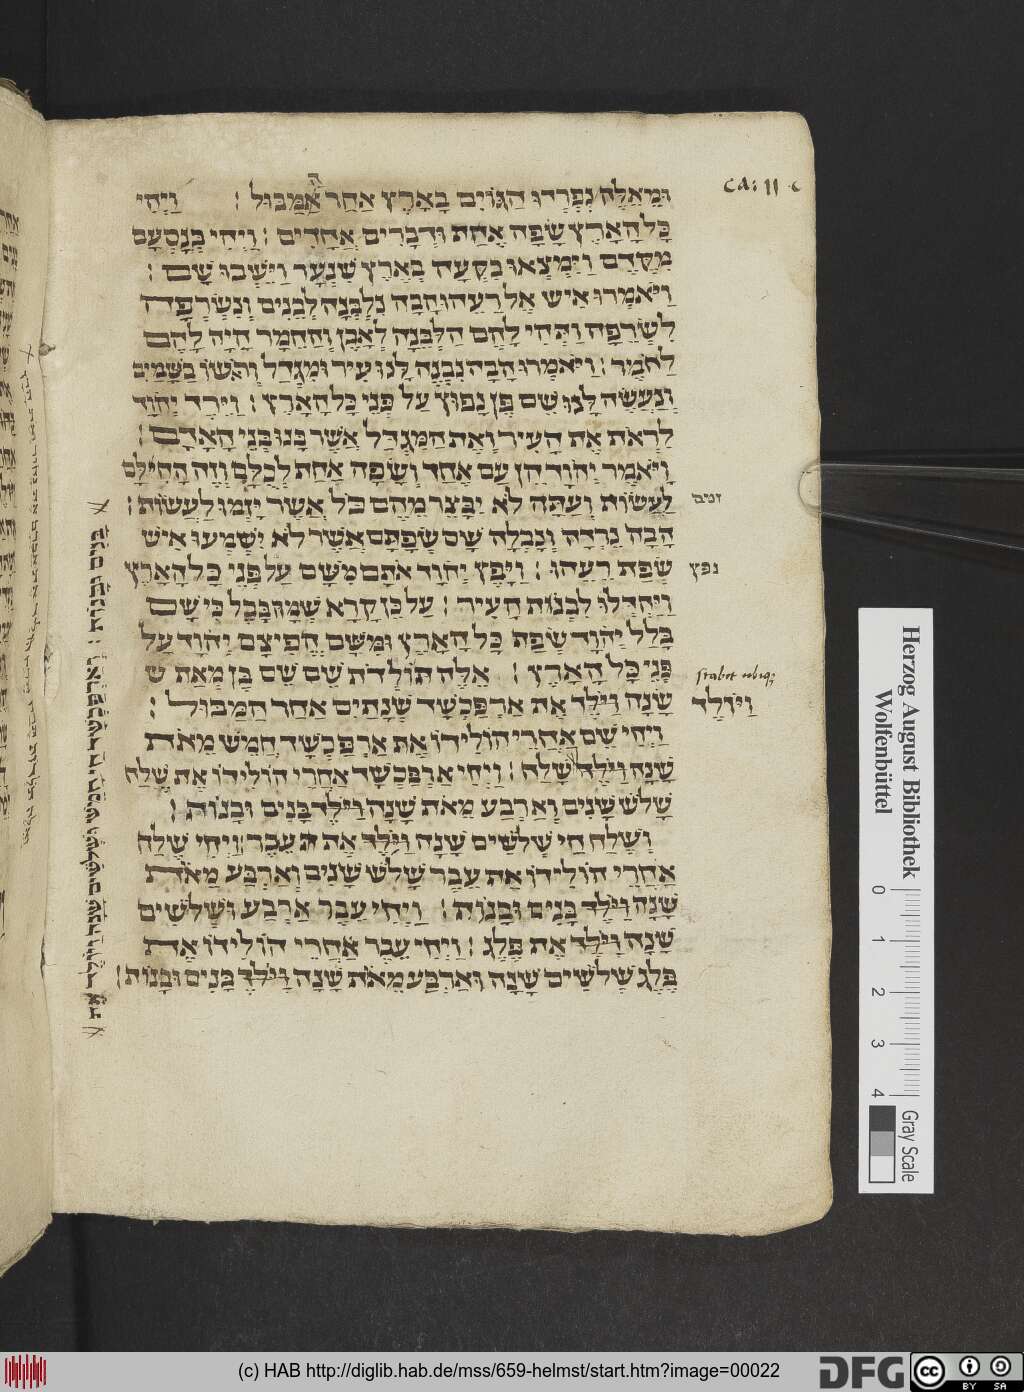 ca: 11 · c
וּמֵאֵלֶּה נִפְרְדוּ הַגּוֹיִם בָּאָרֶץ אַחַר הַמַּבּוּל : וַיְהִי
כָּל הָאָרֶץ שָׂפָה אֶחָת וּדְבָרִים אֲחָדִים : וַיְהִי בְּנָסְעָם
מִקֶּדֶם וַיִּמְצְאוּ בִקְעָה בְּאֶרֶץ שִׁנְעָר וַיֵּשְׁבוּ שָׁם :
וַיֹּאמְרוּ אִישׁ אֶל רֵעֵהוּ הָבָה נִלְבְּנָה לְבֵנִים וְנִשְׂרְפָה
לִשְׂרֵפָה וַתְּהִי לָהֶם הַלְּבֵנָה לְאָבֶן וְהַחֵמָר הָיָה לָהֶם
לַחֹמֶר : וַיֹּאמְרוּ הָבָה נִבְנֶה לָּנוּ עִיר וּמִגְדַּל וְרֹאשׁוֹ בַשָּׁמַיִם
וְנַעֲשֶׂה לָּנוּ שֵׁם פֶּן נָפוּץ עַל פְּנֵי כָּל הָאָרֶץ : וַיֵּרֶד יְהוָד
לִרְאֹת אֶת הָעִיר וְאֶת הַמִּגְדָּל אֲשֶׁר בָּנוּ בְּנֵי הָאָדָם :
וַיֹּאמֶר יְהוָד הֵן עַם אֶחָד וְשָׂפָה אַחַת לְכֻלָּם וְזֶה הַחִלָּם
לַעֲשׂוֹת וְעַתָּה לֹא יִבָּצֵר מֵהֶם כֹּל אֲשֶׁר יָזְמוּ לַעֲשׂוֹת :
זמם
הָבָה נֵרְדָה וְנָבְלָה שָׁם שְׂפָתָם אֲשֶׁר לֹא יִשְׁמְעוּ אִישׁ
שְׂפַת רֵעֵהוּ : וַיָּפֶץ יְהוָד אֹתָם מִשָּׁם עַל פְּנֵי כָל הָאָרֶץ
נפץ
וַיַּחְדְּלוּ לִבְנוֹת הָעִיר : עַל כֵּן קָרָא שְׁמָהּ בָּבֶל כִּי שָׁם
בָּלַל יְהוָד שְׂפַת כָּל הָאָרֶץ וּמִשָּׁם הֱפִיצָם יְהוָד עַל
פְּנֵי כָּל הָאָרֶץ : אֵלֶּה תּוֹלְדֹת שֵׁם שֵׁם בֶּן מְאַת ש
שָׁנָה וַיּוֹלֶד אֶת אַרְפַּכְשָׁד שְׁנָתַיִם אַחַר הַמַּבּוּל :
וַיּוֹלֶד
וַיְחִי שֵׁם אַחֲרֵי הוֹלִידוֹ אֶת אַרְפַּכְשָׁד חֲמֵשׁ מֵאֹת
שָׁנָה וַיּוֹלֶד שָׁלַח : וַיְחִי אַרְפַּכְשָׁד אַחֲרֵי הוֹלִידוֹ אֶת שֶׁלַח
שָׁלֹשׁ שָׁנִים וְאַרְבַּע מֵאֹת שָׁנָה וַיּוֹלֶד בָּנִים וּבָנוֹת :
וְשֶׁלַח חַי שְׁלֹשִׁים שָׁנָה וַיּוֹלֶד אֶת עֵבֶר : וַיְחִי שֶׁלַח
אַחֲרֵי הוֹלִידוֹ אֶת עֵבֶר שָׁלֹשׁ שָׁנִים וְאַרְבַּע מֵאֹת
שָׁנָה וַיּוֹלֶד בָּנִים וּבָנוֹת : וַיְחִי עֵבֶר אַרְבַּע וּשְׁלֹשִׁים
שָׁנָה וַיּוֹלֶד אֶת פָּלֶג : וַיְחִי עֵבֶר אַחֲרֵי הוֹלִידוֹ אֶת
פֶּלֶג שְׁלֹשִׁים שָׁנָה וְאַרְבַּע מֵאֹת שָׁנָה וַיּוֹלֶד בָּנִים וּבָנוֹת :
בָּנִים וּבָנוֹת : וְאַרְפַּכְשָׁד חַי חָמֵשׁ וּשְׁלֹשִׁים שָׁנָה וַיּוֹלֶד אֶת
Herzog August Bibliothek
Wolfenbüttel
0 1 2 3 4
Gray Scale
(c) HAB http://diglib.hab.de/mss/659-helmst/start.htm?image=00022
DFG
cc BY SA